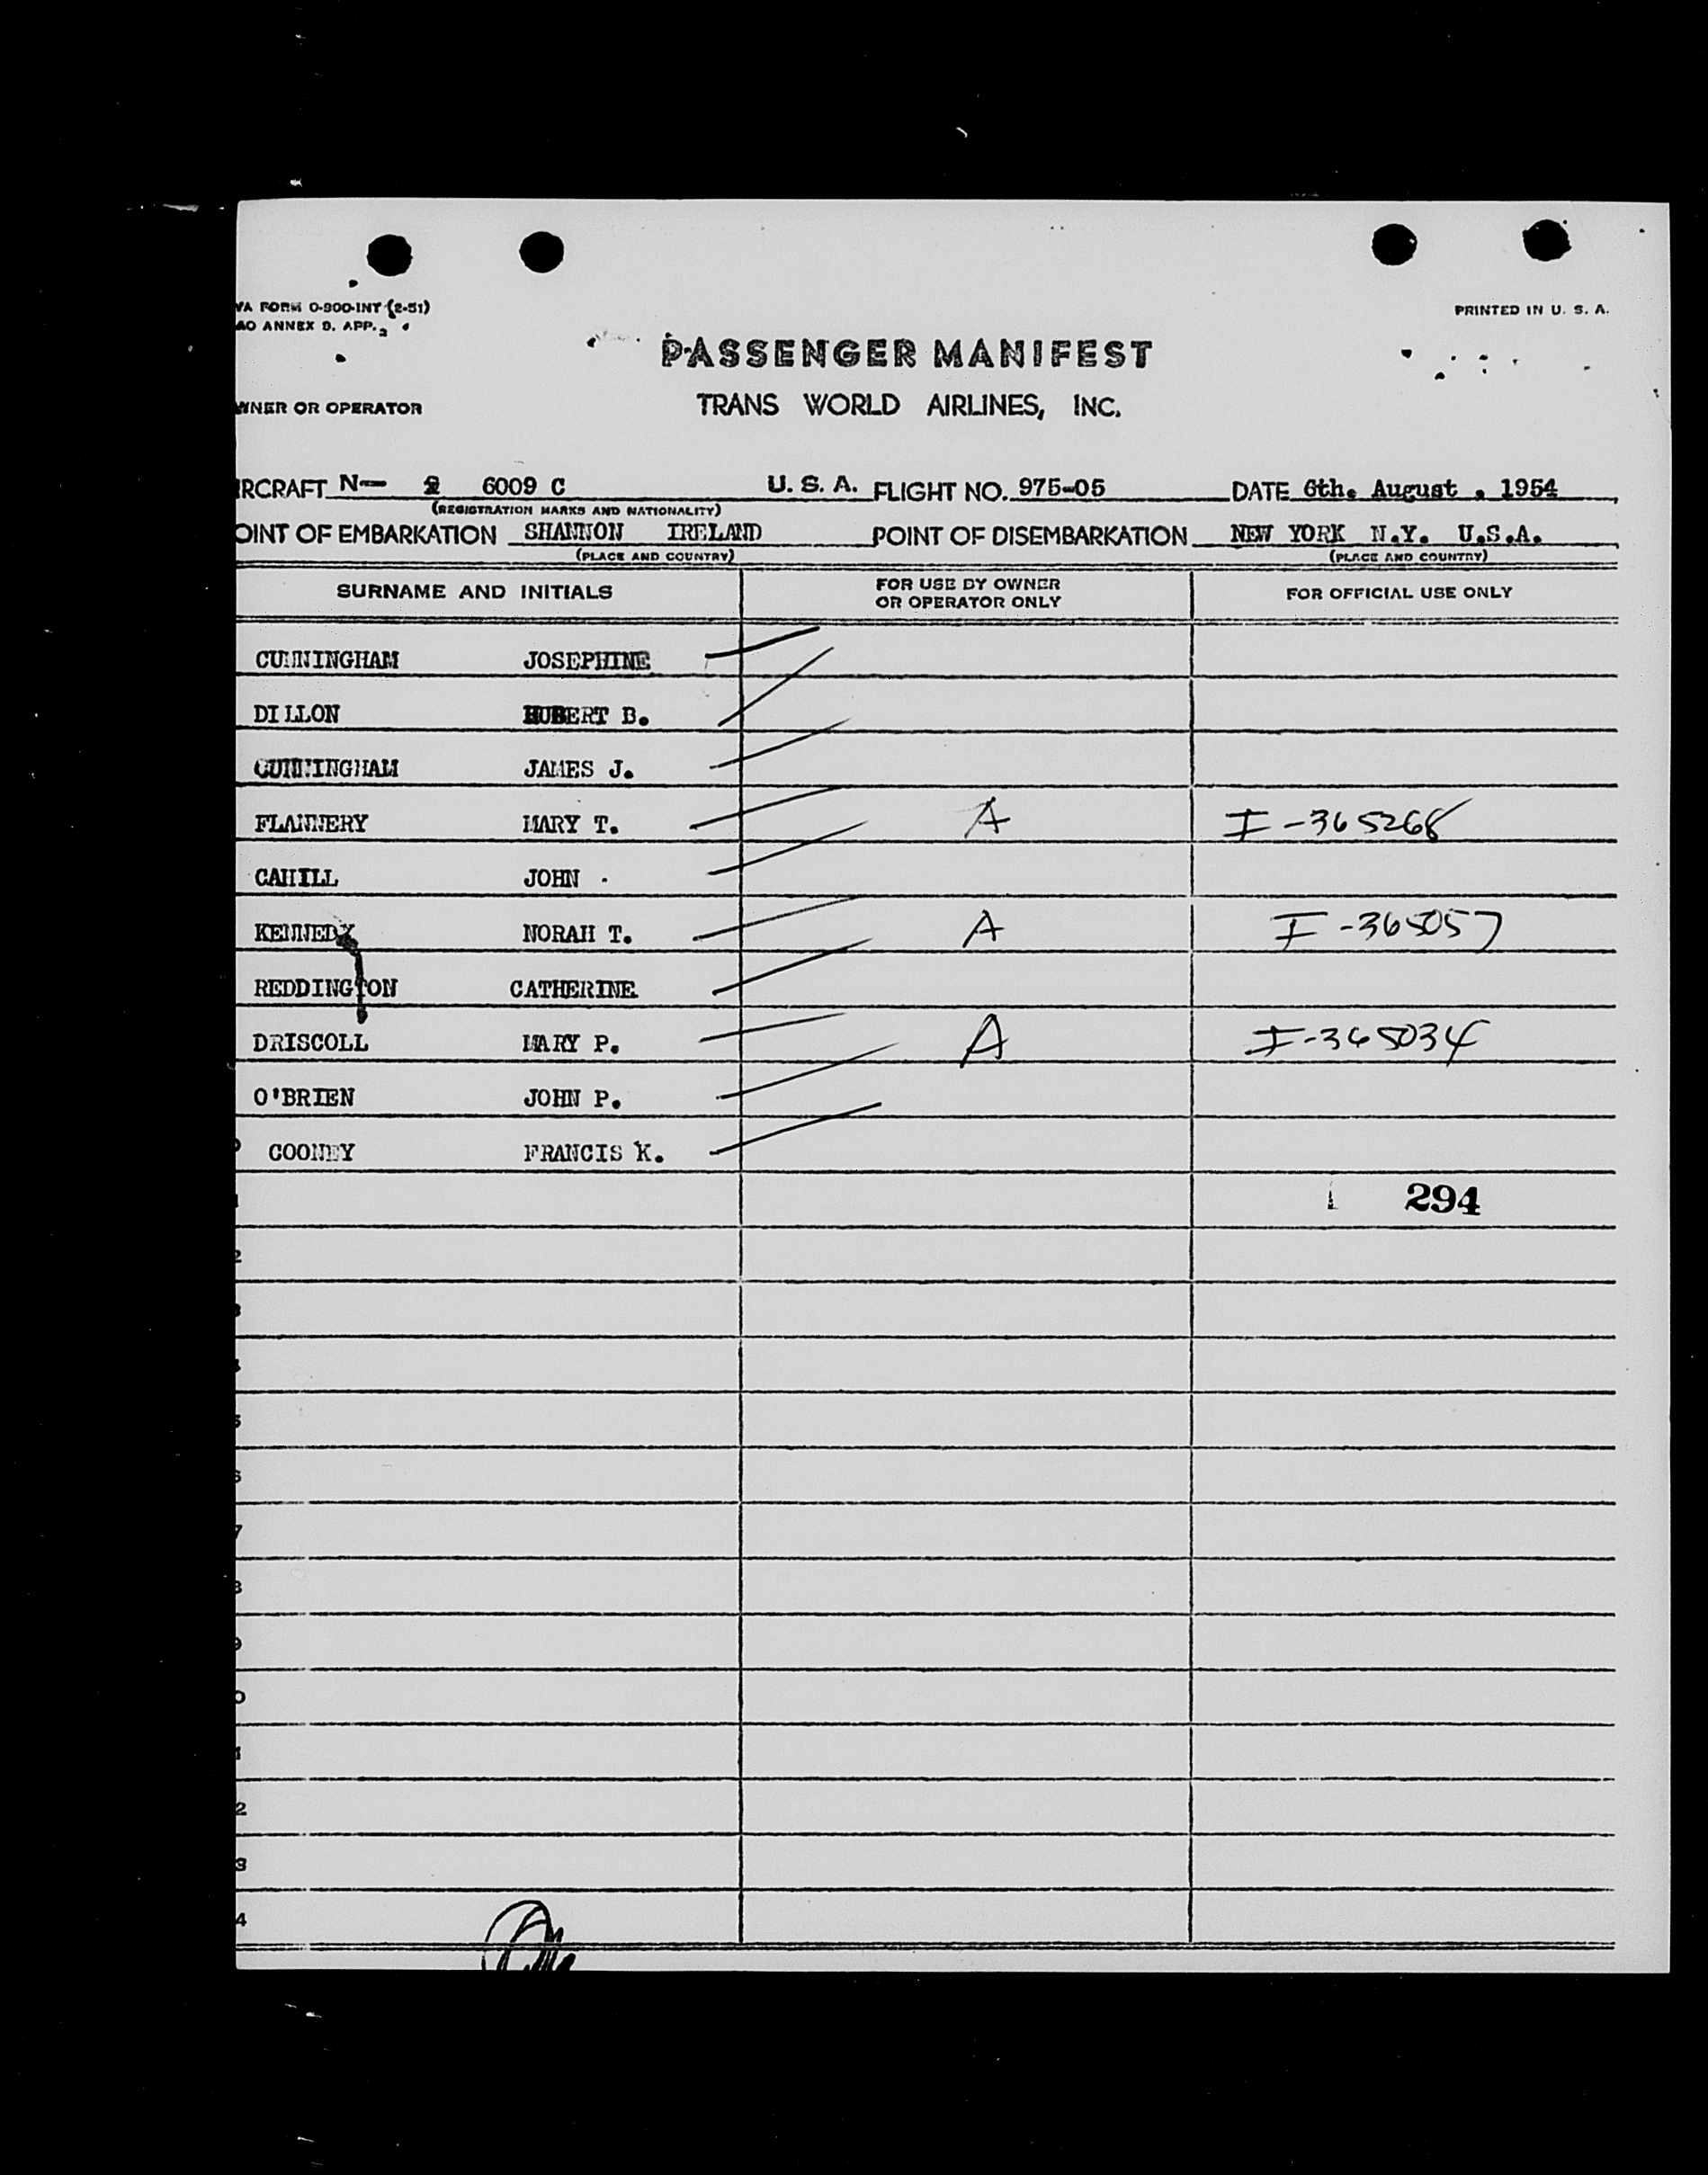 WA FORM O-900-INT (2-51)
AO ANNEX 9. APP. 2
PRINTED IN U. S. A.
PASSENGER MANIFEST
WNER OR OPERATOR TRANS WORLD AIRLINES, INC.
IRCRAFT N- 6009 C U. S. A. FLIGHT NO. 975-05 DATE 6th. August . 1954
(REGISTRATION MARKS AND NATIONALITY)
OINT OF EMBARKATION SHANNON IRELAND POINT OF DISEMBARKATION NEW YORK N.Y. U.S.A.
(PLACE AND COUNTRY) (PLACE AND COUNTRY)
SURNAME AND INITIALS FOR USE BY OWNER OR OPERATOR ONLY FOR OFFICIAL USE ONLY
CUNNINGHAM JOSEPHINE
DILLON HUBERT B.
CUNNINGHAM JAMES J.
FLANNERY MARY T. A I-365268
CAHILL JOHN
KENNEDY NORAH T. A I-365057
REDDINGTON CATHERINE
DRISCOLL MARY P. A I-365034
O'BRIEN JOHN P.
0 COONEY FRANCIS K.
1 294
2
3
4
5
6
7
8
9
0
1
2
3
4